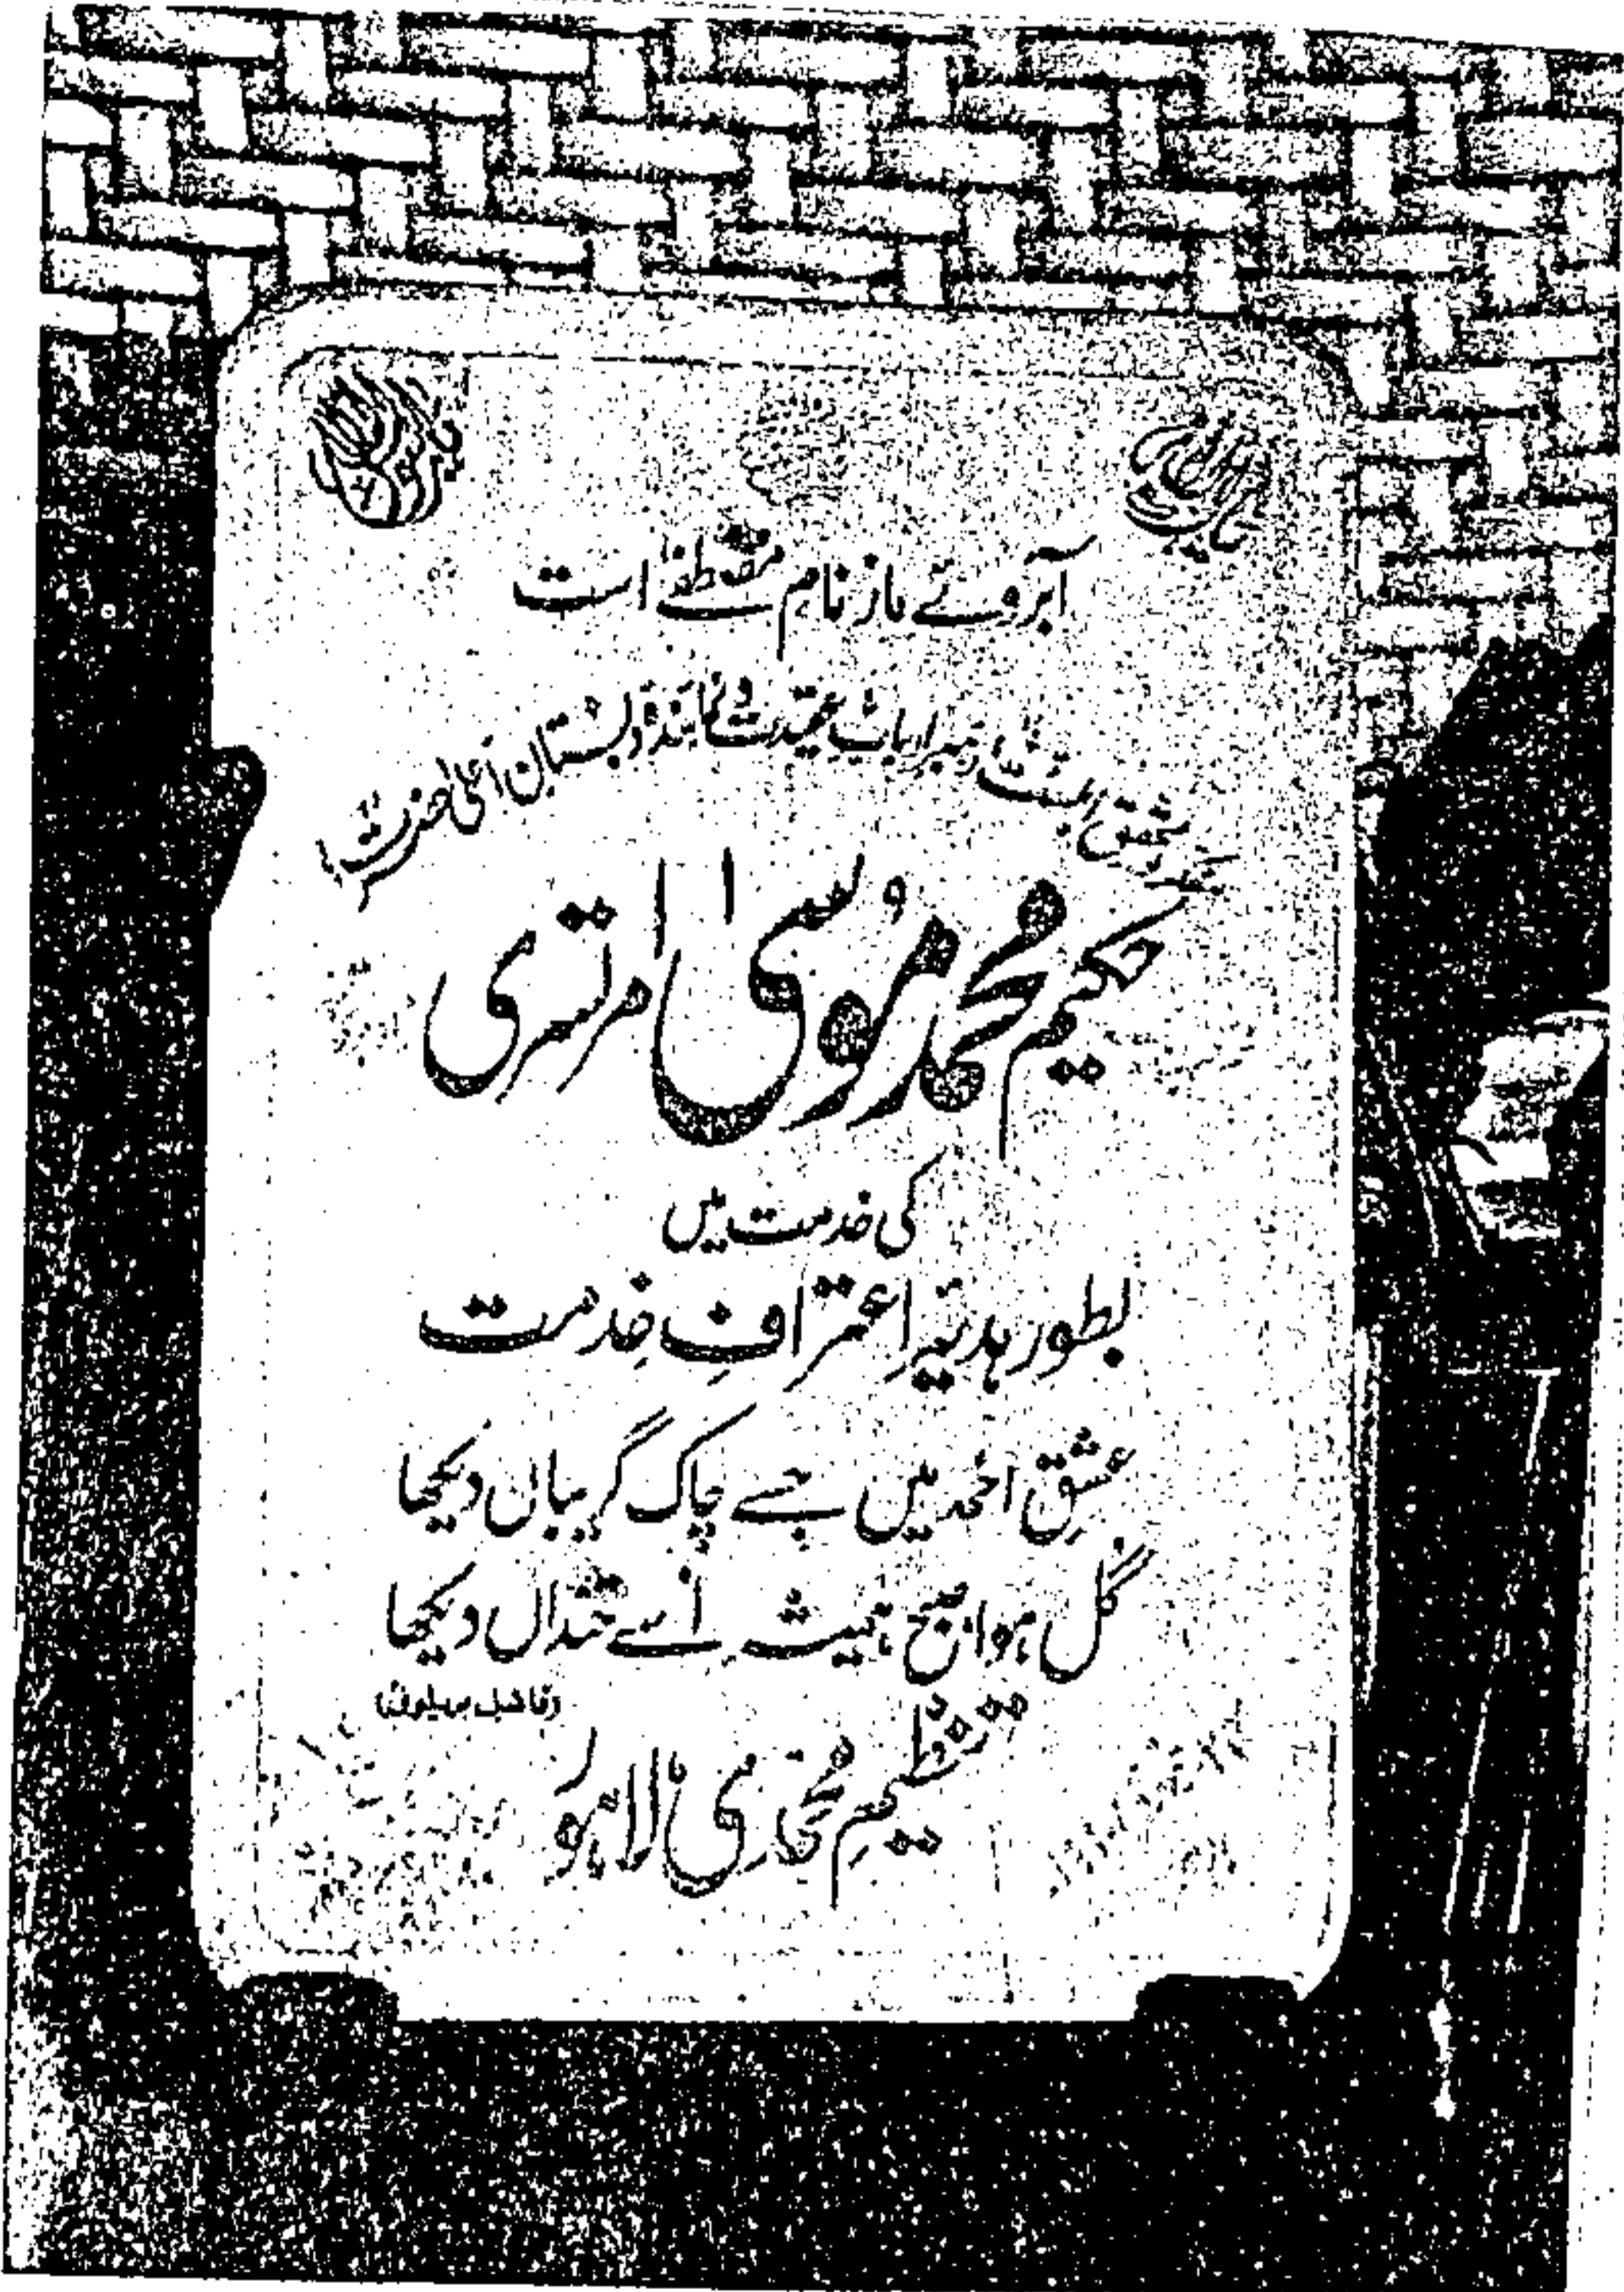 آبروئے ما ز نام مصطفےٰ است
محقق اہلسنت رہبر اربابِ عقیدت و نمائندہ دبستان اعلیٰ حضرت
حکیم محمد موسیٰ امرتسری
کی خدمت میں
بطور ہدیۂ اعترافِ خدمت
عشقِ احمد میں جسے چاک گریباں دیکھا
گل ہوا صبح ہمیشہ اُسے خنداں دیکھا
(فاضل بریلوی)
تنظیم محمدی لاہور